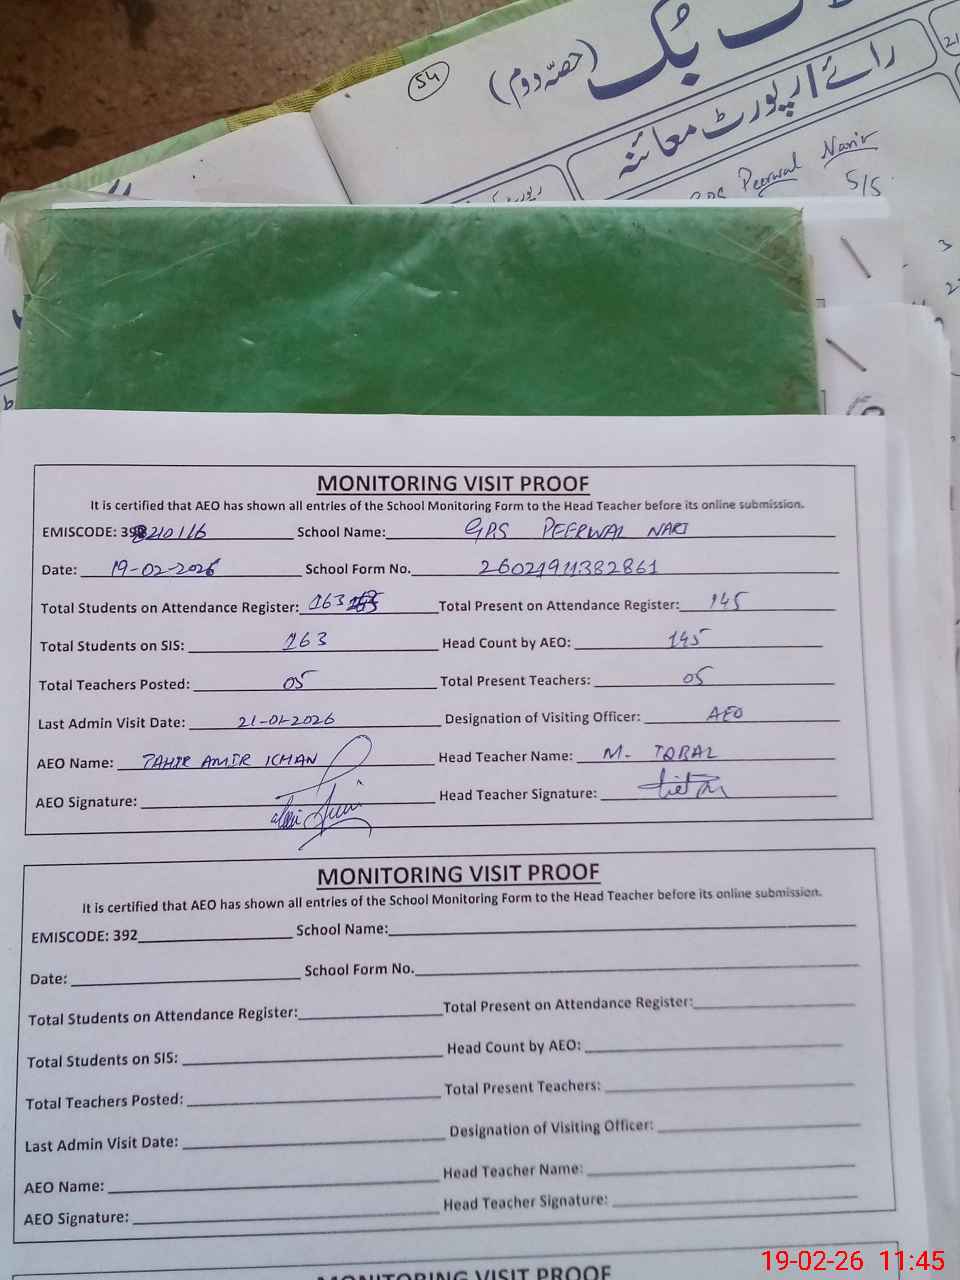 54
بُک
(حصّہ دوم)
رائے / رپورٹ معائنہ
Peerwal Narir
5/5
MONITORING VISIT PROOF
It is certified that AEO has shown all entries of the School Monitoring Form to the Head Teacher before its online submission.
EMISCODE: 39210116 School Name: GPS PEERWAL NARI
Date: 19-02-2026 School Form No. 26021911382861
Total Students on Attendance Register: 163 Total Present on Attendance Register: 145
Total Students on SIS: 163 Head Count by AEO: 145
Total Teachers Posted: 05 Total Present Teachers: 05
Last Admin Visit Date: 21-01-2026 Designation of Visiting Officer: AEO
AEO Name: TAHIR AMIR KHAN Head Teacher Name: M. IQBAL
AEO Signature: Head Teacher Signature:
MONITORING VISIT PROOF
It is certified that AEO has shown all entries of the School Monitoring Form to the Head Teacher before its online submission.
EMISCODE: 392 School Name:
Date: School Form No.
Total Students on Attendance Register: Total Present on Attendance Register:
Total Students on SIS: Head Count by AEO:
Total Teachers Posted: Total Present Teachers:
Last Admin Visit Date: Designation of Visiting Officer:
AEO Name: Head Teacher Name:
AEO Signature: Head Teacher Signature:
MONITORING VISIT PROOF
19-02-26 11:45